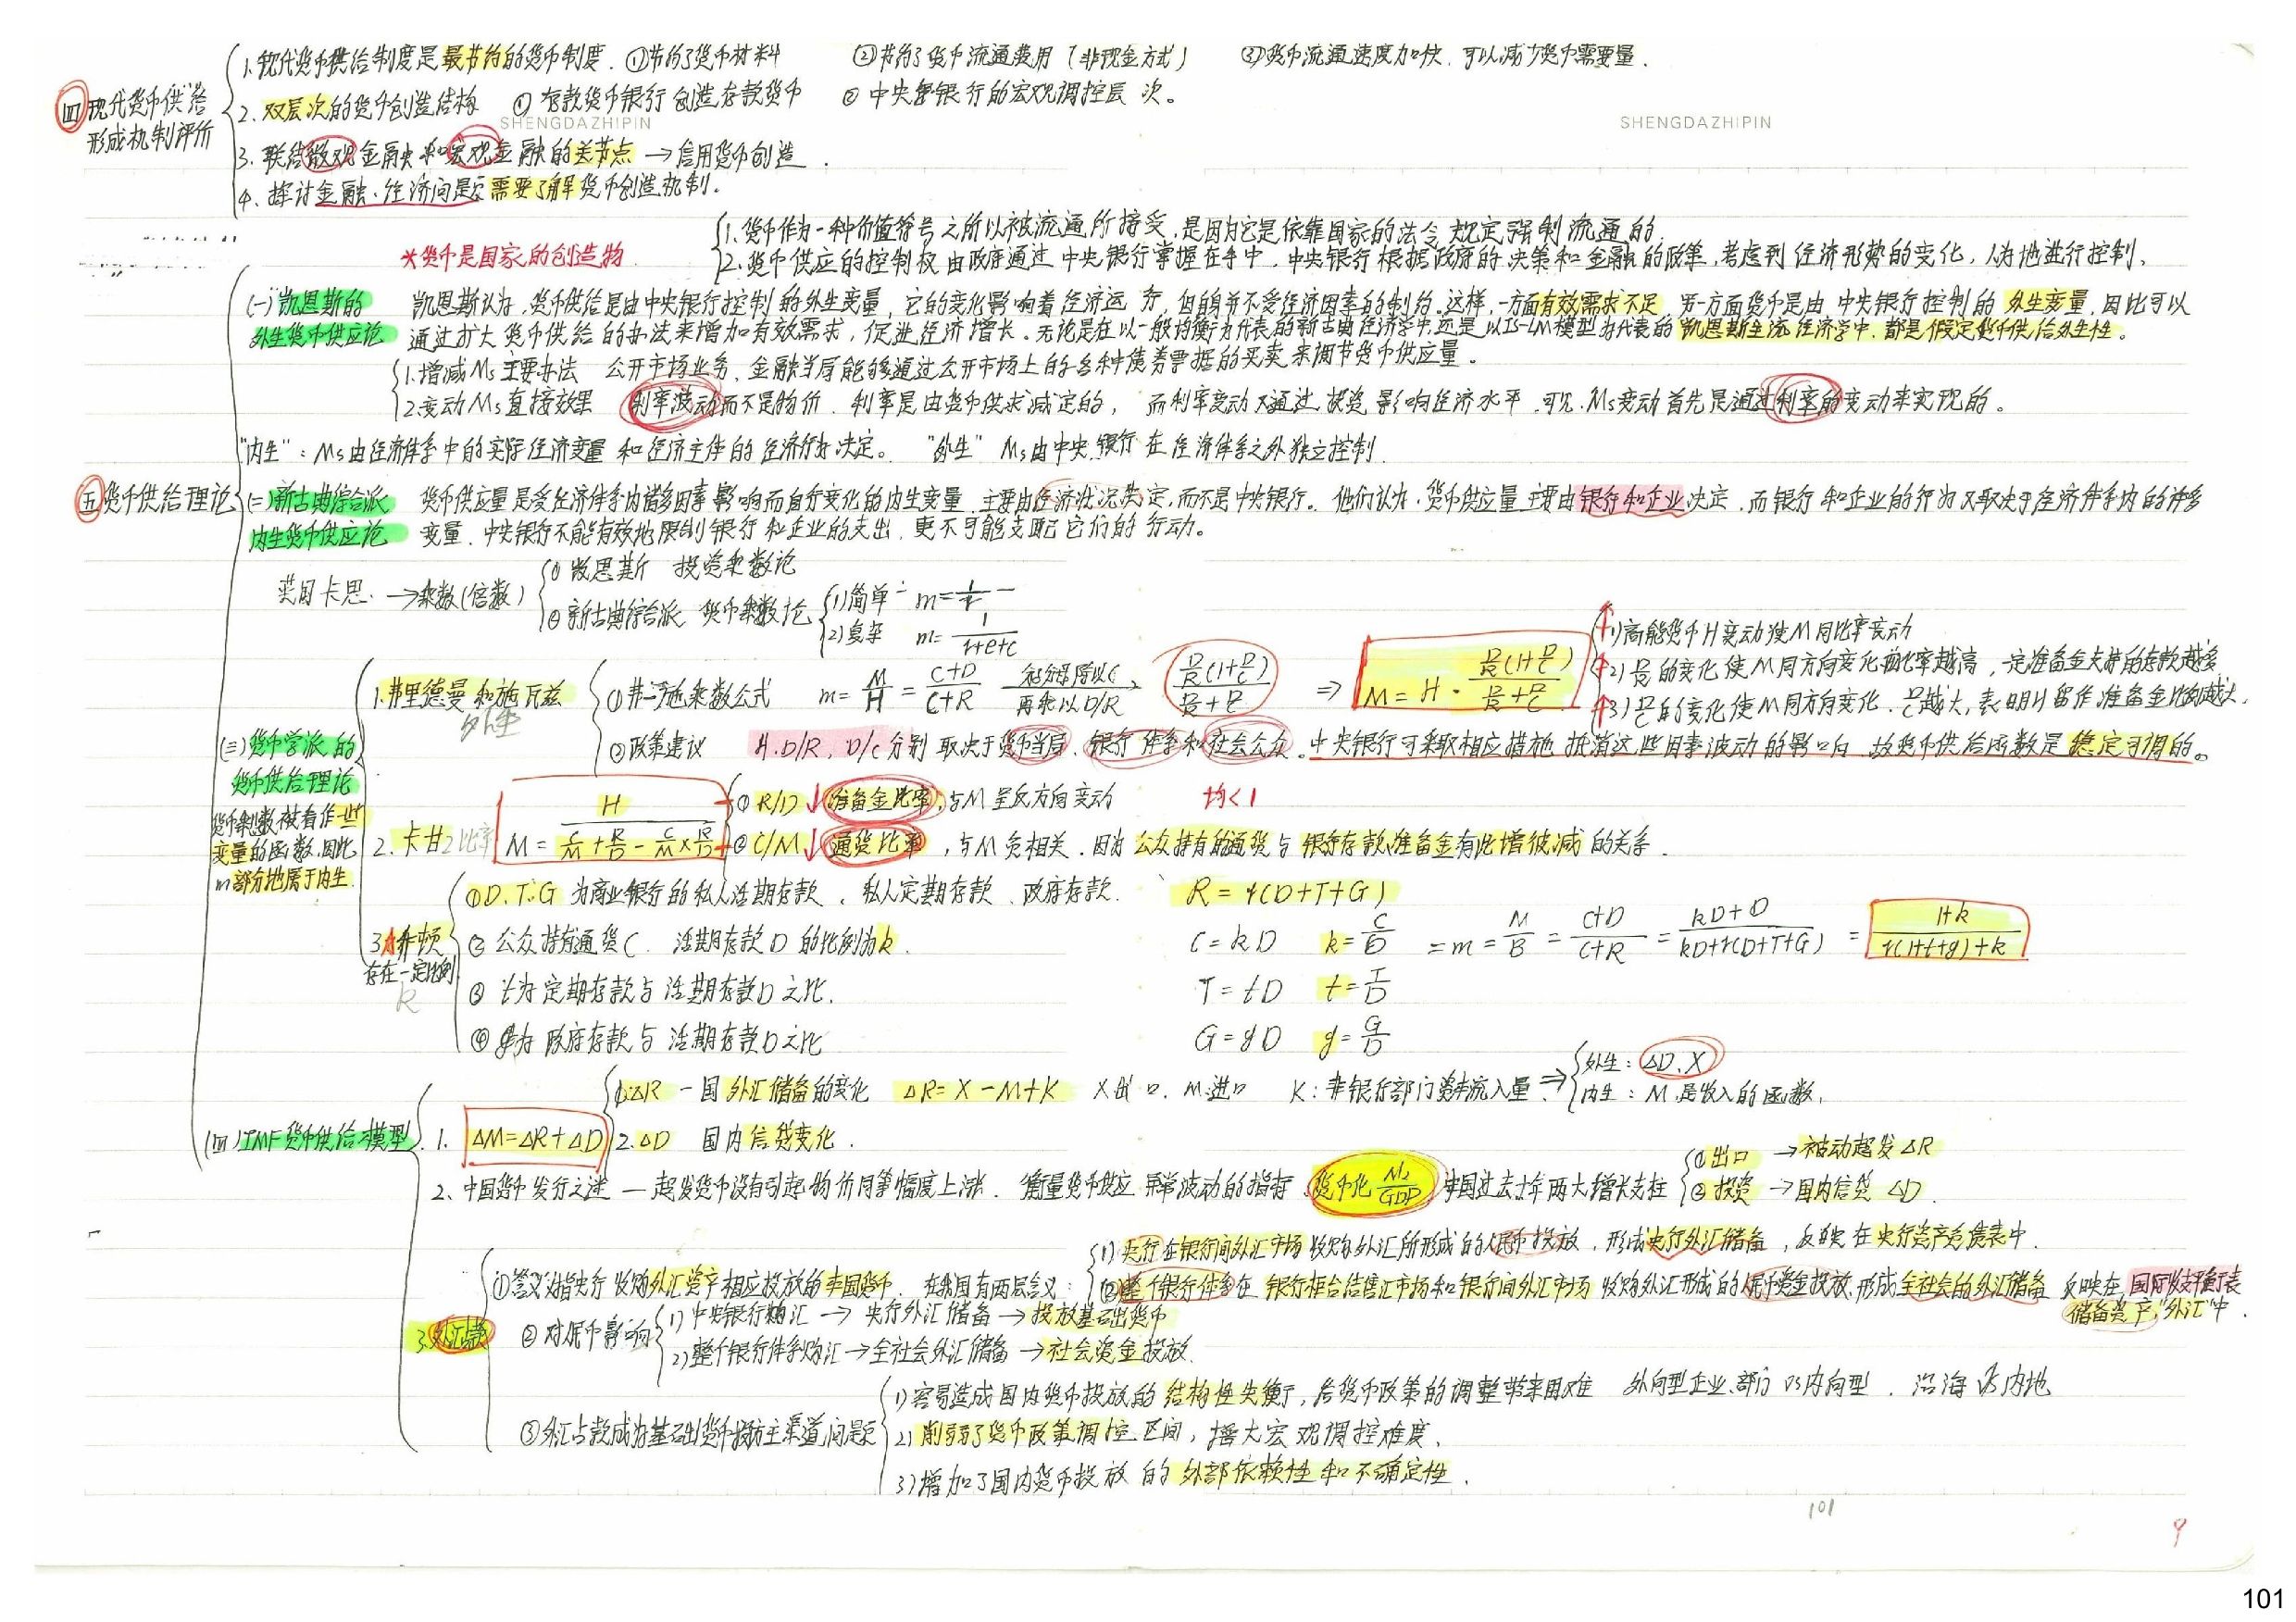 四 现代货币供给形成机制评价
1. 现代货币供给制度是最节约的货币制度. ①节约了货币材料 ②节约了货币流通费用(非现金方式) ③货币流通速度加快, 可以减少货币需要量.
2. 双层次的货币创造结构 ① 存款货币银行创造存款货币 ② 中央银行的宏观调控层次。
SHENGDAZHIPIN SHENGDAZHIPIN
3. 联结微观金融和宏观金融的关节点 → 信用货币创造.
4. 探讨金融、经济问题需要了解货币创造机制.
五 货币供给理论
*货币是国家的创造物
1. 货币作为一种价值符号之所以被流通所接受, 是因为它是依靠国家的法令规定强制流通的.
2. 货币供应的控制权由政府通过中央银行掌握在手中. 中央银行根据政府的决策和金融的政策, 考虑到经济形势的变化, 人为地进行控制.
(一) 凯恩斯的外生货币供应论
凯恩斯认为, 货币供给是由中央银行控制的外生变量, 它的变化影响着经济运行, 但自身并不受经济因素的制约. 这样, 一方面有效需求不足 另一方面货币是由中央银行控制的外生变量, 因此可以
通过扩大货币供给的办法来增加有效需求, 促进经济增长。无论是在以一般均衡为代表的新古典经济学中, 还是以IS-LM模型为代表的凯恩斯主流经济学中, 都是假定货币供给外生性。
1. 增减Ms主要办法 公开市场业务, 金融当局能够通过公开市场上的各种债券票据的买卖来调节货币供应量。
2. 变动Ms直接效果 利率波动而不是物价. 利率是由货币供求决定的, 而利率变动又通过投资影响经济水平. 可见, Ms变动首先是通过利率的变动来实现的。
"内生": Ms由经济体系中的实际经济变量和经济主体的经济行为决定。 "外生" Ms由中央银行在经济体系之外独立控制.
(二) 新古典综合派内生货币供应论
货币供应量是受经济体系内诸多因素影响而自行变化的内生变量, 主要由经济状况决定, 而不是中央银行。他们认为, 货币供应量主要由银行和企业决定, 而银行和企业的行为又取决于经济体系内的许多
变量, 中央银行不能有效地限制银行和企业的支出, 更不可能支配它们的行动。
英国卡恩. → 乘数(倍数)
① 凯恩斯 投资乘数论
② 新古典综合派 货币乘数论
(1) 简单 m = 1/r
(2) 复杂 m = 1/(r+e+c)
(三) 货币学派的货币供给理论
货币乘数被看作一些变量的函数, 因此m部分地属于内生.
1. 弗里德曼和施瓦兹
外生
① 弗-施乘数公式 m = M/H = (C+D)/(C+R) 分子分母除以C 再乘以D/R D/R(1+D/C)/(D/R+D/C) ⇒ M = H · D/R(1+D/C)/(D/R+D/C)
↑ 1) 高能货币H变动使M同比率变动
↑ 2) D/R的变化使M同方向变化 比率越高, 一定准备金支持的存款越多
↑ 3) D/C的变化使M同方向变化. D/C越大, 表明H留作准备金比例越大.
② 政策建议 H. D/R, D/C分别取决于货币当局, 银行体系和社会公众. 中央银行可采取相应措施抵消这些因素波动的影响, 故货币供给函数是稳定可调的。
2. 卡甘 2比率 M = H/(C/M + R/D - C/M × R/D)
① R/D ↓ 准备金比率, 与M呈反方向变动 均<1
② C/M ↓ 通货比率, 与M负相关. 因为公众持有的通货与银行存款准备金有此增彼减的关系.
3. 乔顿
存在一定比例
k
① D. T. G 为商业银行的私人活期存款, 私人定期存款, 政府存款. R = r(D+T+G)
② 公众持有通货C. 活期存款D的比例为k. C = kD k = C/D = m = M/B = (C+D)/(C+R) = (kD+D)/(kD+r(D+T+G)) = (1+k)/(r(1+t+g)+k)
③ t为定期存款与活期存款D之比. T = tD t = T/D
④ g为政府存款与活期存款D之比 G = gD g = G/D
(四) IMF货币供给模型
1. ΔM=ΔR+ΔD
1. ΔR 一国外汇储备的变化 ΔR = X - M + K X出口, M进口 K: 非银行部门资本流入量. ⇒ 外生: ΔD. X
内生: M 是收入的函数.
2. ΔD 国内信贷变化.
2. 中国货币发行之迷 — 超发货币没有引起物价同等幅度上涨. 衡量货币供应异常波动的指标, 货币化 M₂/GDP 中国过去十年两大增长支柱
① 出口 → 被动超发ΔR
② 投资 → 国内信贷 ΔD.
3. 外汇占款
① 含义: 指央行收购外汇资产相应投放的本国货币. 在我国有两层含义:
(1) 央行在银行间外汇市场收购外汇所形成的人民币投放, 形成央行外汇储备, 反映在央行资产负债表中.
(2) 整个银行体系在银行柜台结售汇市场和银行间外汇市场收购外汇形成的人民币资金投放, 形成全社会的外汇储备 反映在国际收支平衡表储备资产"外汇"中.
② 对货币影响
1) 中央银行购汇 → 央行外汇储备 → 投放基础货币
2) 整个银行体系购汇 → 全社会外汇储备 → 社会资金投放.
③ 外汇占款成为基础货币投放主渠道问题
1) 容易造成国内货币投放的结构性失衡, 给货币政策的调整带来困难 外向型企业、部门 VS 内向型. 沿海 VS 内地
2) 削弱了货币政策调控区间, 增大宏观调控难度.
3) 增加了国内货币投放的外部依赖性和不确定性.
101
9
101